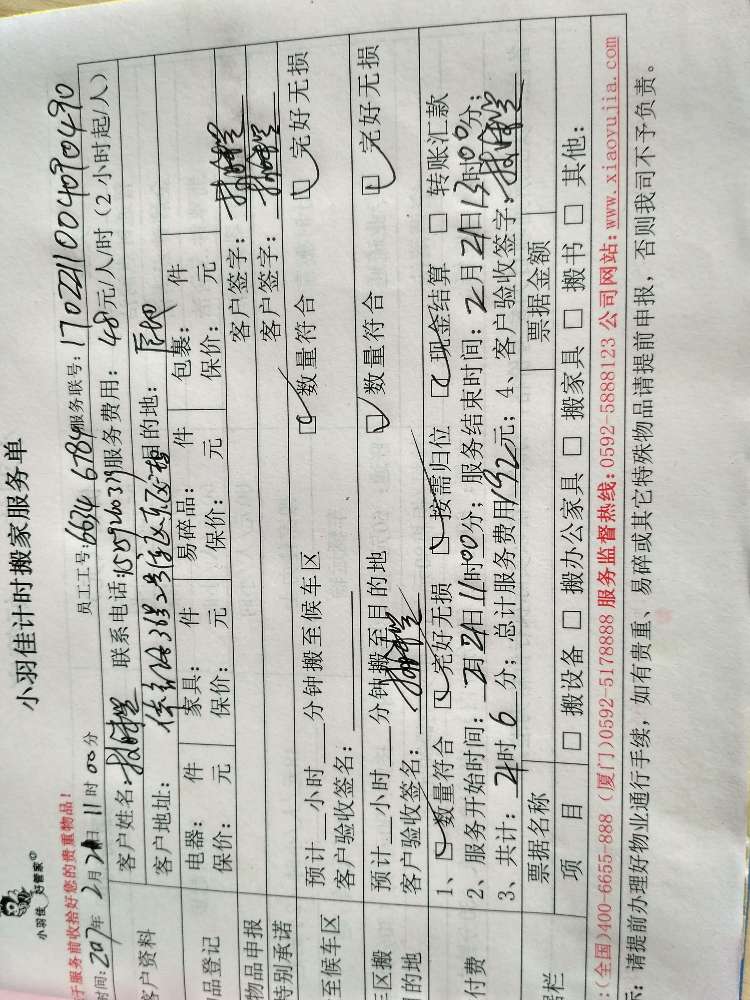 小羽佳计时搬家服务单
小羽佳 好管家
于服务前收拾好您的贵重物品!
员工工号:6634 6784 服务联号:17022110040490490
时间:2017年2月21日11时00分
客户资料
客户姓名: 联系电话: 服务费用:48元/人/时(2小时起/人)
客户地址: 目的地:
品登记
电器: 件 家具: 件 易碎品: 件 包裹: 件
保价: 元 保价: 元 保价: 元 保价: 元
物品申报 客户签字:
特别承诺 客户签字:
至候车区
预计 小时 分钟搬至候车区 ☑数量符合 ☑完好无损
客户验收签名:
车区搬
目的地
预计 小时 分钟搬至目的地 ☑数量符合 ☑完好无损
客户验收签名:
付费
1、☑数量符合 ☑完好无损 ☑按需归位 ☑现金结算 □转账汇款
2、服务开始时间:2月21日11时00分;服务结束时间:2月21日13时00分;
3、共计:2时 分;总计服务费用192元;4、客户验收签字:
据栏
票据名称 票据金额
项目 □搬设备 □搬办公家具 □搬家具 □搬书 □其他:
:(全国)400-6655-888(厦门)0592-5178888 服务监督热线:0592-5888123 公司网站:www.xiaoyujia.com
示:请提前办理好物业通行手续,如有贵重、易碎或其它特殊物品请提前申报,否则我司不予负责。